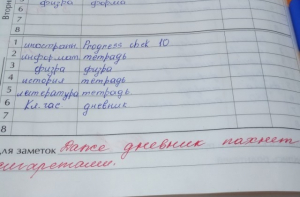 Вторн
5
6 физра форма
7
8
1 иностран. Progress chek 10
2 информат. тетрадь
3 физра физра
4 история тетрадь
5 литература тетрадь
6 Кл. час дневник
7
8
для заметок Даже дневник пахнет
сигаретами.